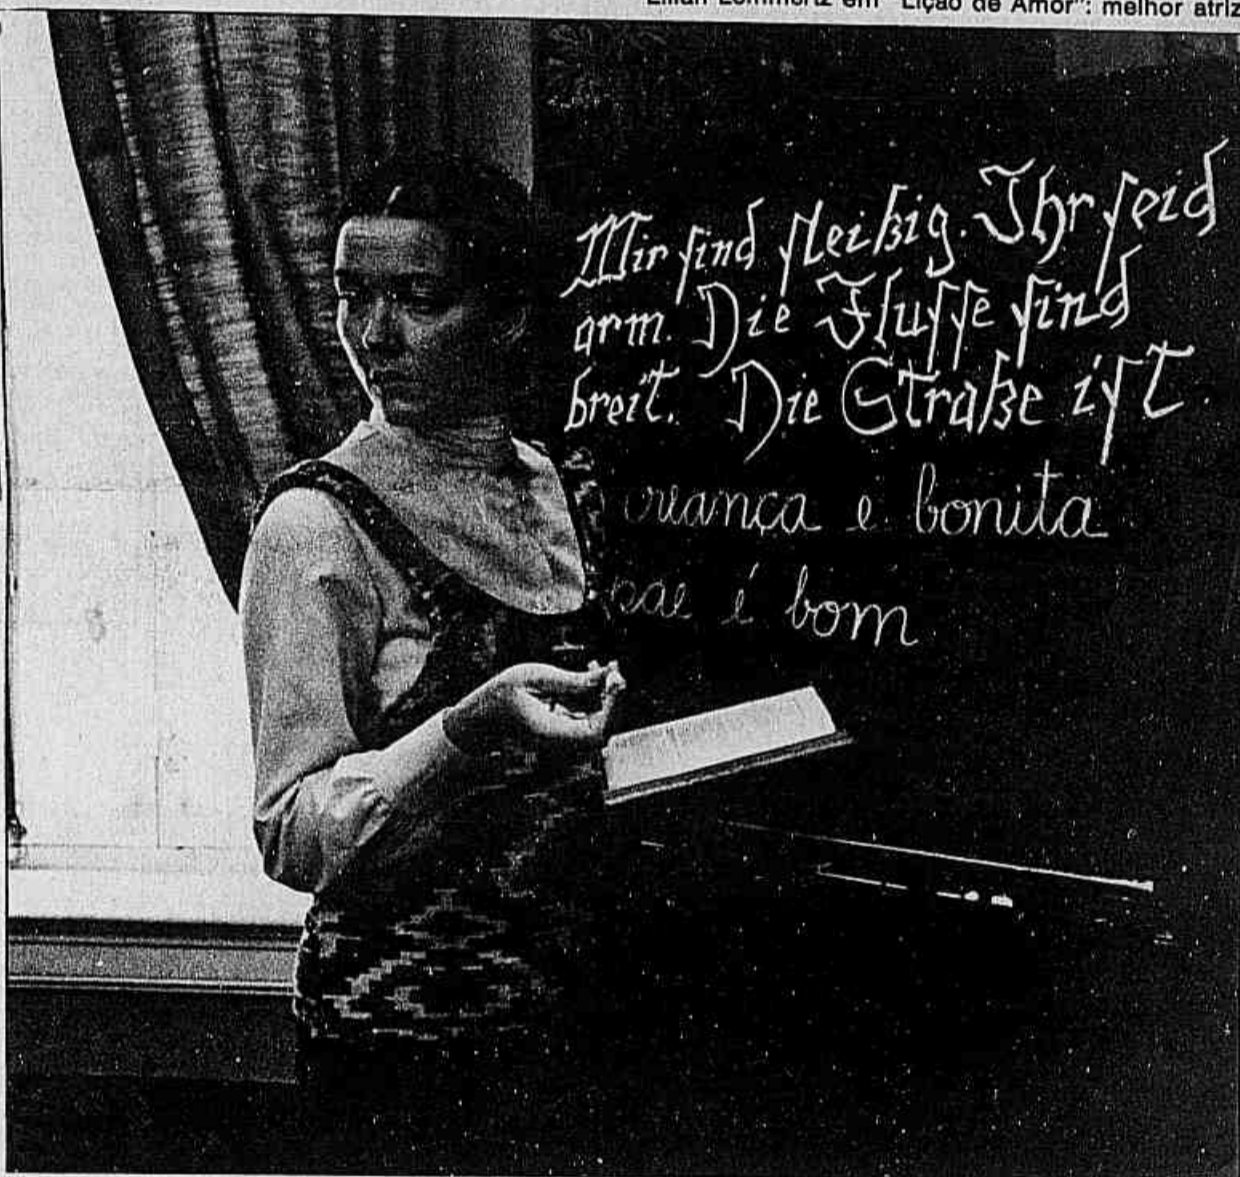 Lilian Lemmertz em "Lição de Amor": melhor atriz
Wir sind fleißig. Ihr seid
arm. Die Flusse sind
breit. Die Straße ist
criança e bonita
pae é bom